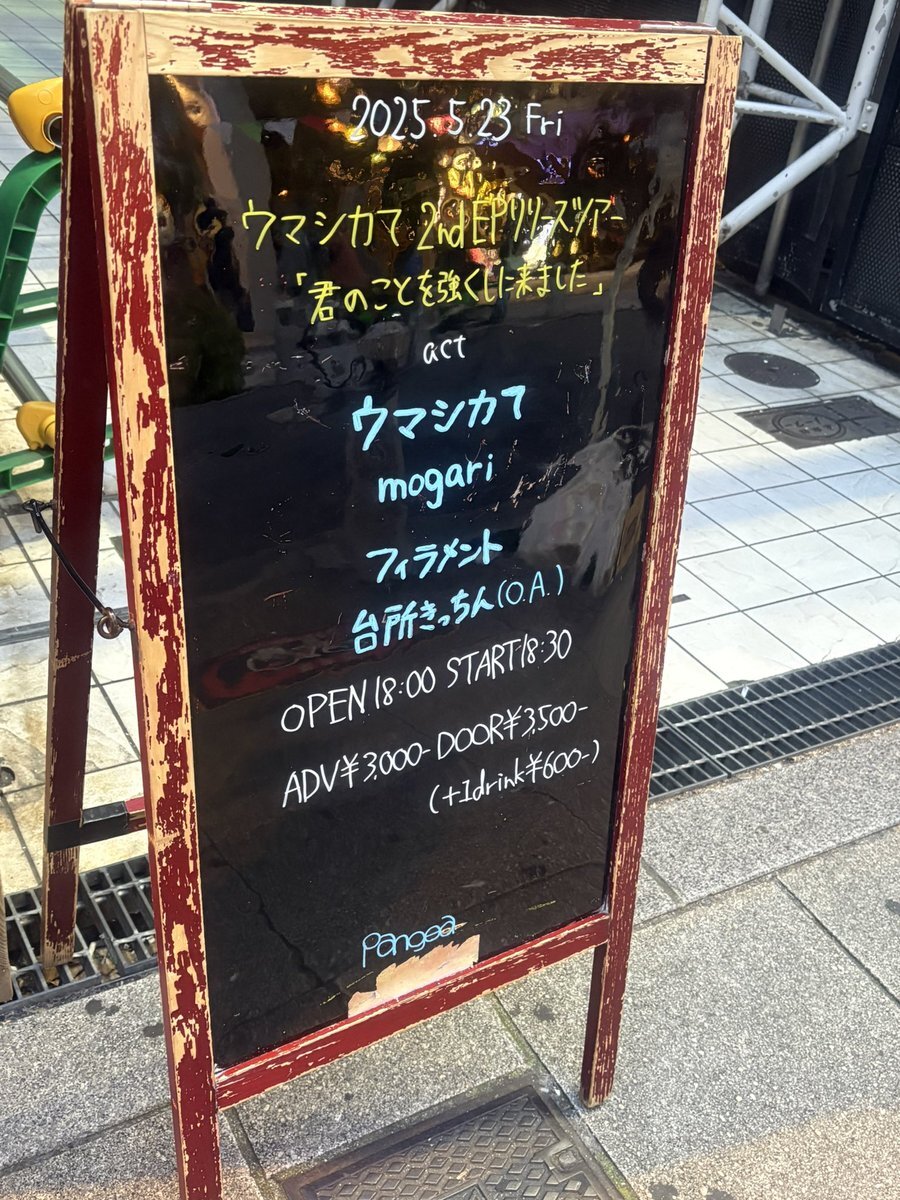 2025 5.23 Fri
ウマシカて 2nd EPリリースツアー
「君のことを強くしに来ました」
act
ウマシカて
mogari
フィラメント
台所きっちん(O.A.)
OPEN 18:00 START 18:30
ADV¥3,000- DOOR¥3,500-
(+1drink¥600-)
Pangea